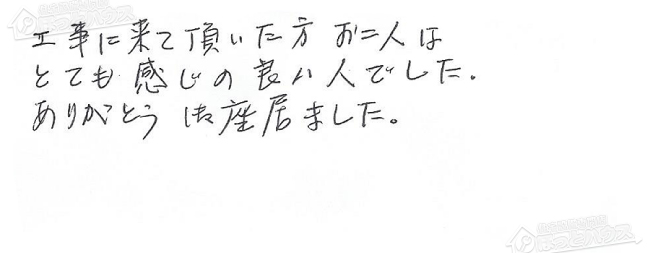 工事に来て頂いた方お二人は
とても感じの良い人でした.
ありがとう御座居ました。